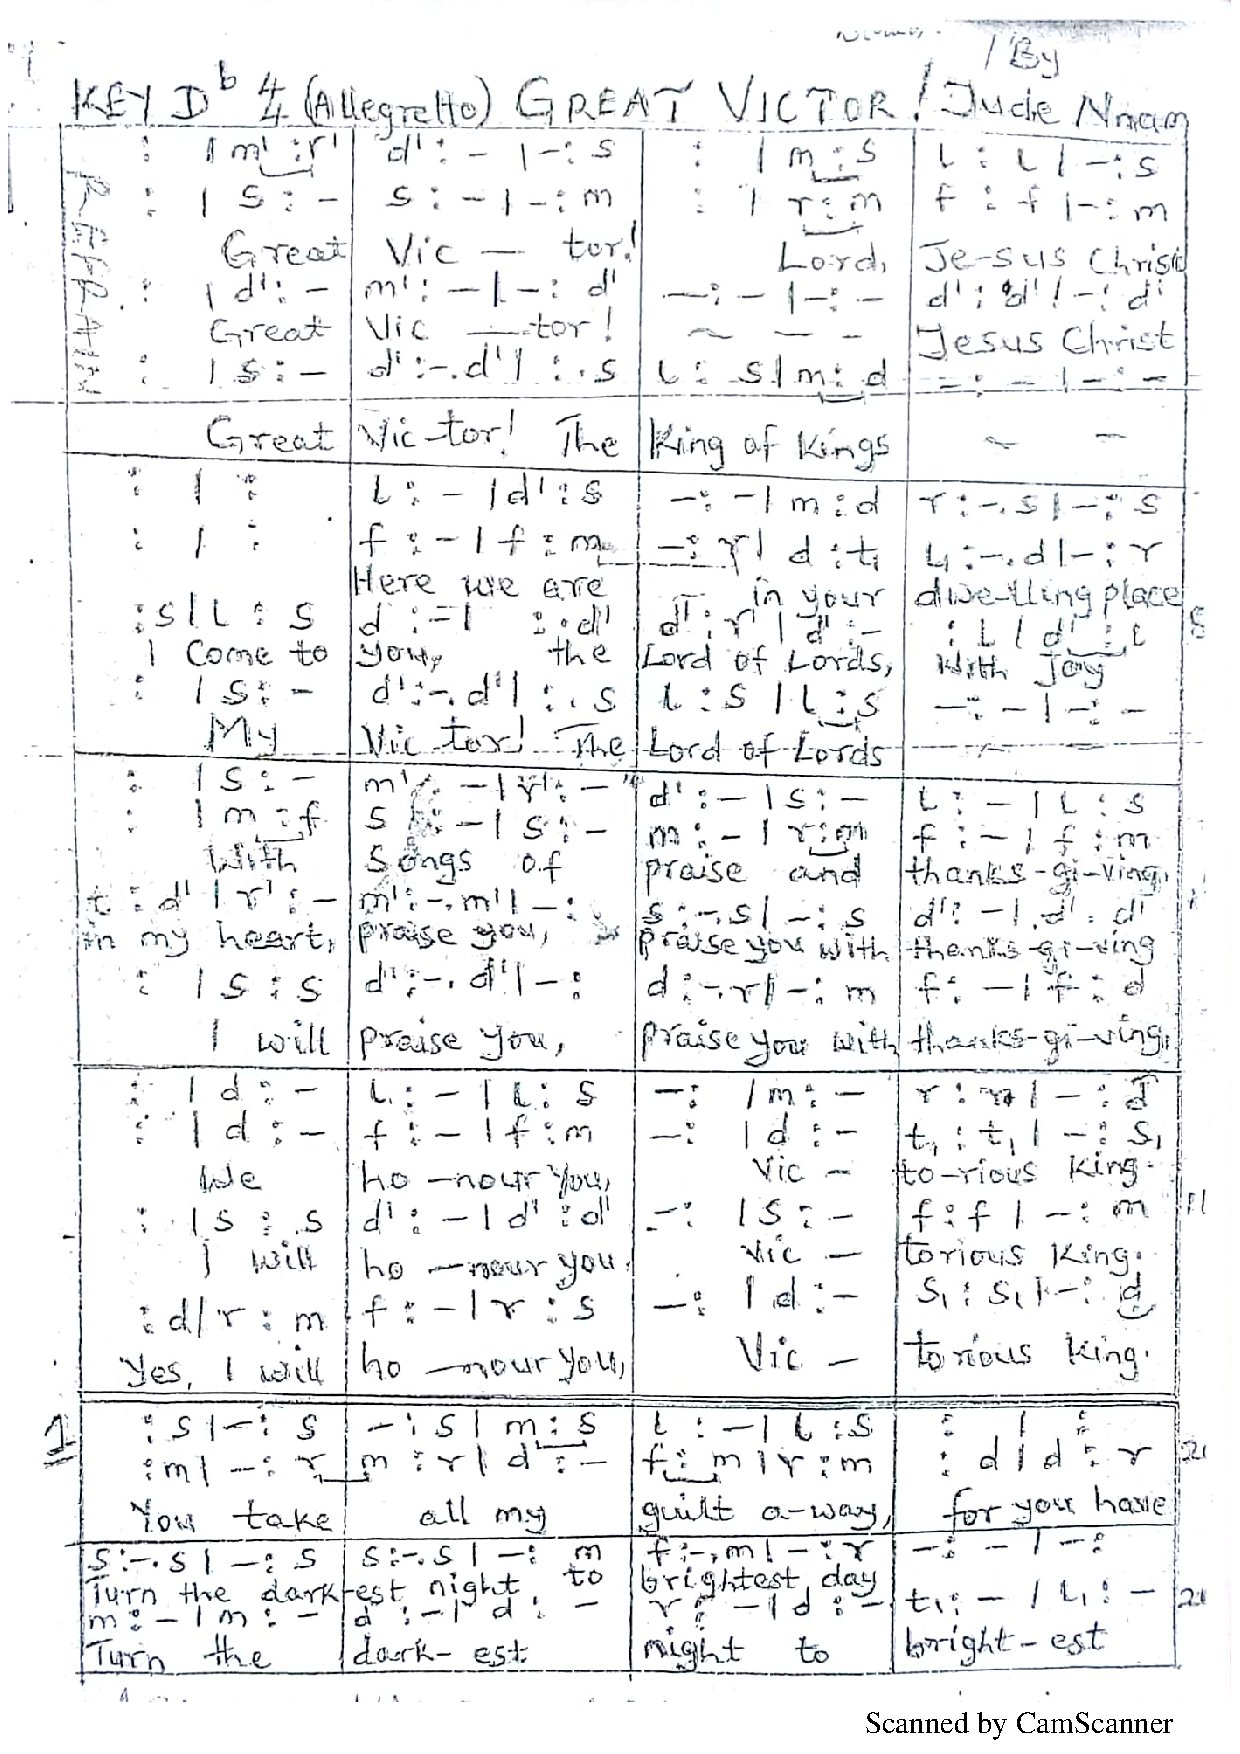 / By
KEY Db 4/4 (Allegretto) GREAT VICTOR! Jude Nnam
: | m' : r' d' : – | – : s : | m : s l : l | – : s
: | s : – s : – | – : m : | r : m f : f | – : m
Great Vic — tor! Lord, Je-sus Christ
: | d' : – m' : – | – : d' – : – | – : – d' : d' | – : d'
Great Vic — tor! ~ – – Jesus Christ
: | s : – d' : –. d' | : . s l : s | m : d – : – | – : –
Great Vic-tor! The King of Kings ~ –
: | : l : – | d' : s – : – | m : d r : –. s | – : s
: | : f : – | f : m – : r | d : t₁ l₁ : –. d | – : r
Here we are in your dwe-lling place
: s | l : s d : – | : . d' d' : r' | d' : – : l | d' : l 5
I come to you, the Lord of Lords, with joy
: | s : – d' : –. d' | : . s l : s | l : s – : – | – : –
My Vic tor! The Lord of Lords – –
: | s : – m' : – | r' : – d' : – | s : – l : – | l : s
: | m : f s : – | s : – m : – | r : m f : – | f : m
With songs of praise and thanks-gi-ving.
t : d' | r' : – m' : –. m' | – : s : –. s | – : s d' : – | d' : d'
in my heart, praise you, praise you with thanks-gi-ving
: | s : s d' : –. d' | – : d : –. r | – : m f : – | f : d
I will praise you, praise you with thanks-gi-ving.
: | d : – l : – | l : s – : | m : – r : r | – : d
: | d : – f : – | f : m – : | d : – t₁ : t₁ | – : s₁
We ho —nour you, Vic – to-rious King.
: | s : s d' : – | d' : d' – : | s : – f : f | – : m 11
I will ho —nour you. Vic – torious King.
: d | r : m f : – | r : s – : | d : – s₁ : s₁ | – : d
Yes, I will ho —nour you, Vic – torious King.
1 : s | – : s – : s | m : s l : – | l : s : | :
: m | – : r m : r | d : – f : m | r : m : d | d : r 21
You take all my guilt a-way, for you have
s : –. s | – : s s : –. s | – : m f : –. m | – : r – : – | – :
Turn the dark-est night, to brightest day
m : – | m : – d : – | d : – r : – | d : – t₁ : – | l₁ : –
Turn the dark- est night to bright-est
Scanned by CamScanner